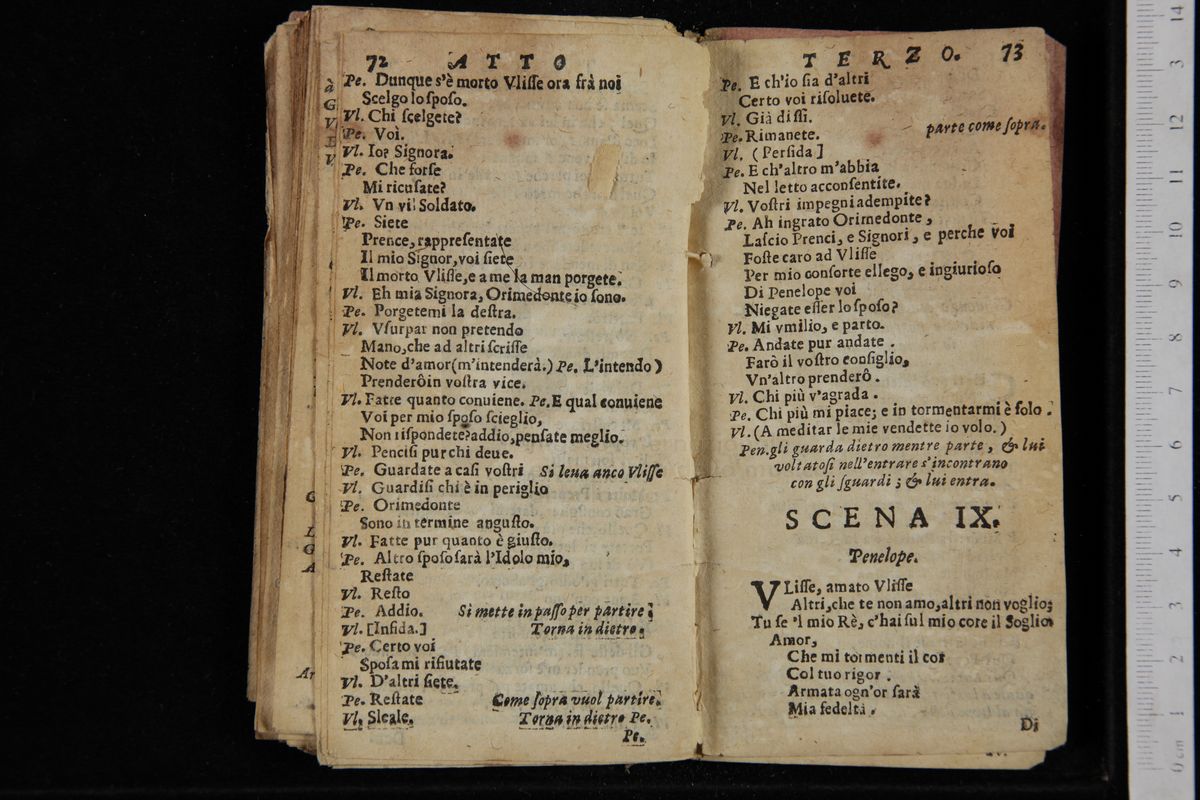 72 ATTO
Pe. Dunque s'è morto Vlisse ora frà noi
Scelgo lo sposo.
Vl. Chi scelgete?
Pe. Voi.
Vl. Io? Signora.
Pe. Che forse
Mi ricusate?
Vl. Vn vil Soldato.
Pe. Siete
Prence, rappresentate
Il mio Signor, voi siete
Il morto Vlisse, e a me la man porgete.
Vl. Eh mia Signora, Orimedonte io sono.
Pe. Porgetemi la destra.
Vl. Vsurpar non pretendo
Mano, che ad altri scrisse
Note d'amor (m'intenderà.) Pe. L'intendo)
Prenderô in vostra vice.
Vl. Fatte quanto conuiene. Pe. E qual conuiene
Voi per mio sposo scieglio,
Non rispondete? addio, pensate meglio.
Vl. Pencisi pur chi deue.
Pe. Guardate a casi vostri Si leua anco Vlisse
Vl. Guardisi chi è in periglio
Pe. Orimedonte
Sono in termine angusto.
Vl. Fatte pur quanto è giusto.
Pe. Altro sposo sarà l'Idolo mio,
Restate
Vl. Resto
Pe. Addio. Si mette in passo per partire;
Vl. [Infida.] Torna in dietro.
Pe. Certo voi
Sposa mi rifiutate
Vl. D'altri siete.
Pe. Restate Come sopra vuol partire.
Vl. Sleale. Torna in dietro Pe.
Pe.
TERZO. 73
Pe. E ch'io sia d'altri
Certo voi risoluete.
Vl. Già dissi.
Pe. Rimanete. parte come sopra.
Vl. (Perfida]
Pe. E ch'altro m'abbia
Nel letto acconsentite.
Vl. Vostri impegni adempite?
Pe. Ah ingrato Orimedonte,
Lascio Prenci, e Signori, e perche voi
Foste caro ad Vlisse
Per mio consorte ellego, e ingiurioso
Di Penelope voi
Niegate esser lo sposo?
Vl. Mi vmilio, e parto.
Pe. Andate pur andate.
Farò il vostro consiglio,
Vn'altro prenderô.
Vl. Chi più v'agrada.
Pe. Chi più mi piace; e in tormentarmi è solo.
Vl. (A meditar le mie vendette io volo.)
Pen. gli guarda dietro mentre parte, & lui
voltatosi nell'entrare s'incontrano
con gli sguardi; & lui entra.
SCENA IX.
Penelope.
VLisse, amato Vlisse
Altri, che te non amo, altri non voglio;
Tu se 'l mio Rè, c'hai sul mio core il Soglio.
Amor,
Che mi tormenti il cor
Col tuo rigor.
Armata ogn'or sarà
Mia fedeltà.
Di